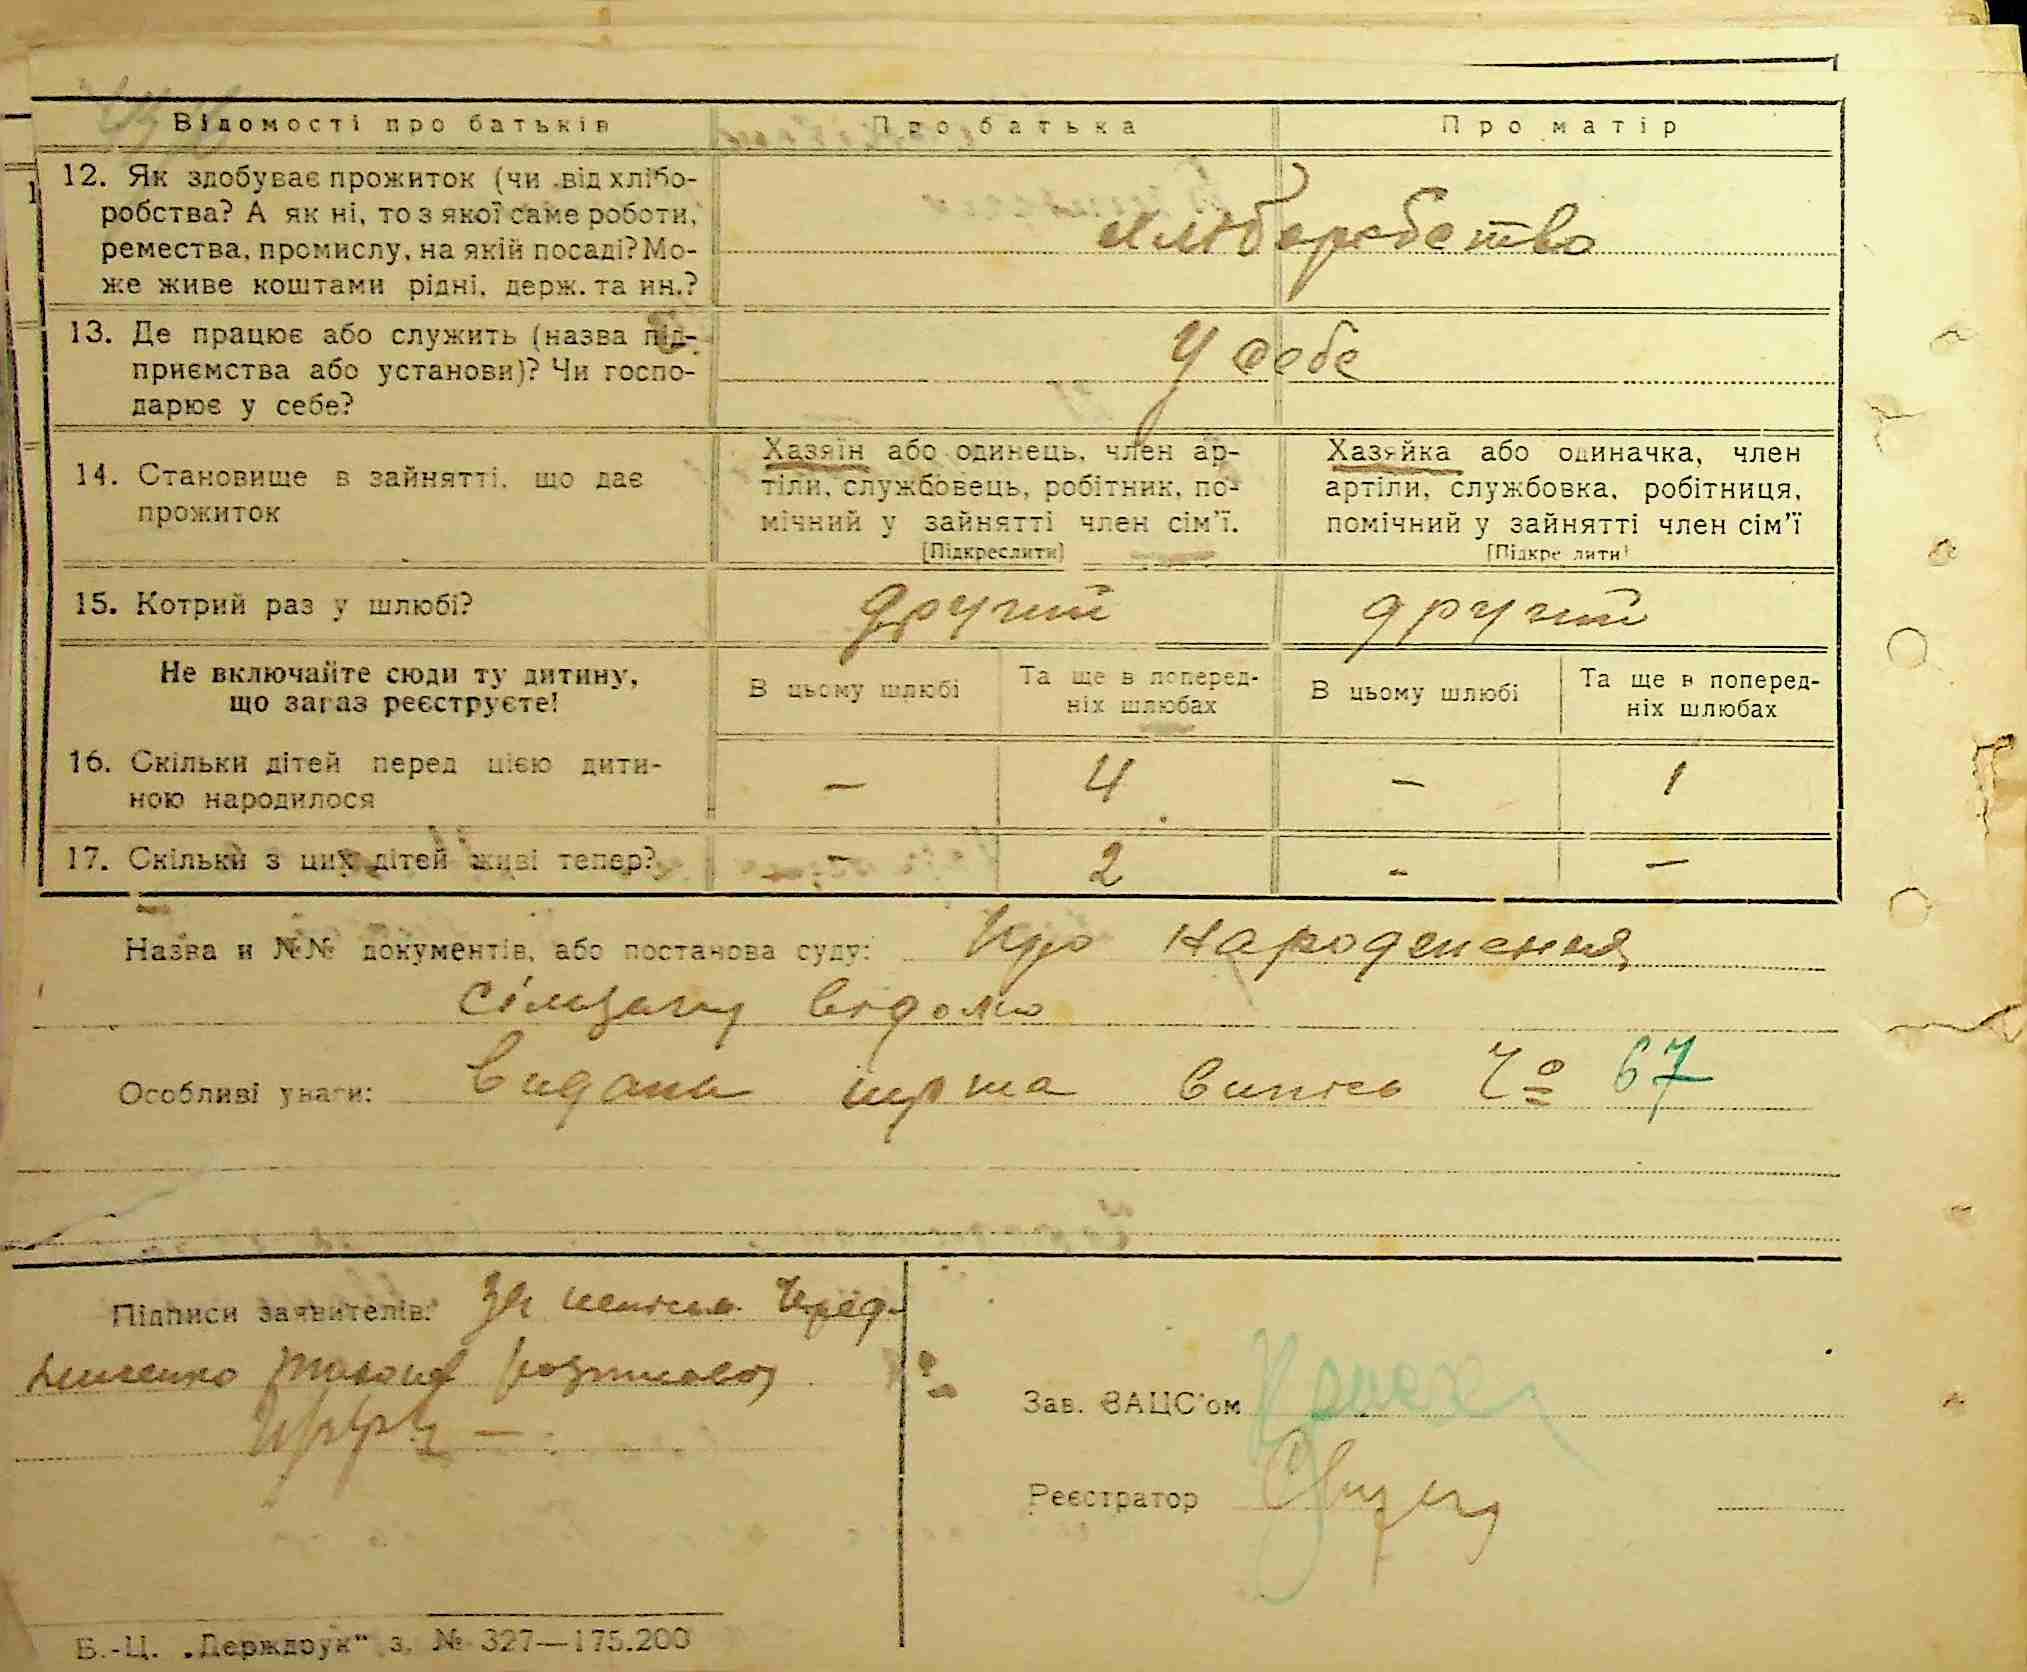 Відомості про батьків Про батька Про матір
12. Як здобуває прожиток (чи від хлібо-
робства? А як ні, то з якої саме роботи,
ремества, промислу, на якій посаді? Мо-
же живе коштами рідні, держ. та ин.?
хліборобство
13. Де працює або служить (назва під-
приємства або установи)? Чи госпо-
дарює у себе?
у себе
14. Становище в зайнятті, що дає
прожиток
Хазяїн або одинець, член ар-
тіли, службовець, робітник, по-
мічний у зайнятті член сім'ї.
[Підкреслити]
Хазяйка або одиначка, член
артіли, службовка, робітниця,
помічний у зайнятті член сім'ї
[Підкре лити]
15. Котрий раз у шлюбі? другий другий
Не включайте сюди ту дитину,
що зараз реєструєте!
В цьому шлюбі
Та ще в поперед-
ніх шлюбах
В цьому шлюбі
Та ще в поперед-
ніх шлюбах
16. Скільки дітей перед цією дити-
ною народилося
– 4 – 1
17. Скільки з цих дітей живі тепер? – 2 - –
Назва и №№ документів, або постанова суду: про народження
відомо
Особливі уваги: видана перша випись № 67
Підписи заявителів: За
Зав. ЗАЦС'ом
Реєстратор
Б.-Ц. „Держдрук" з. № 327—175.200